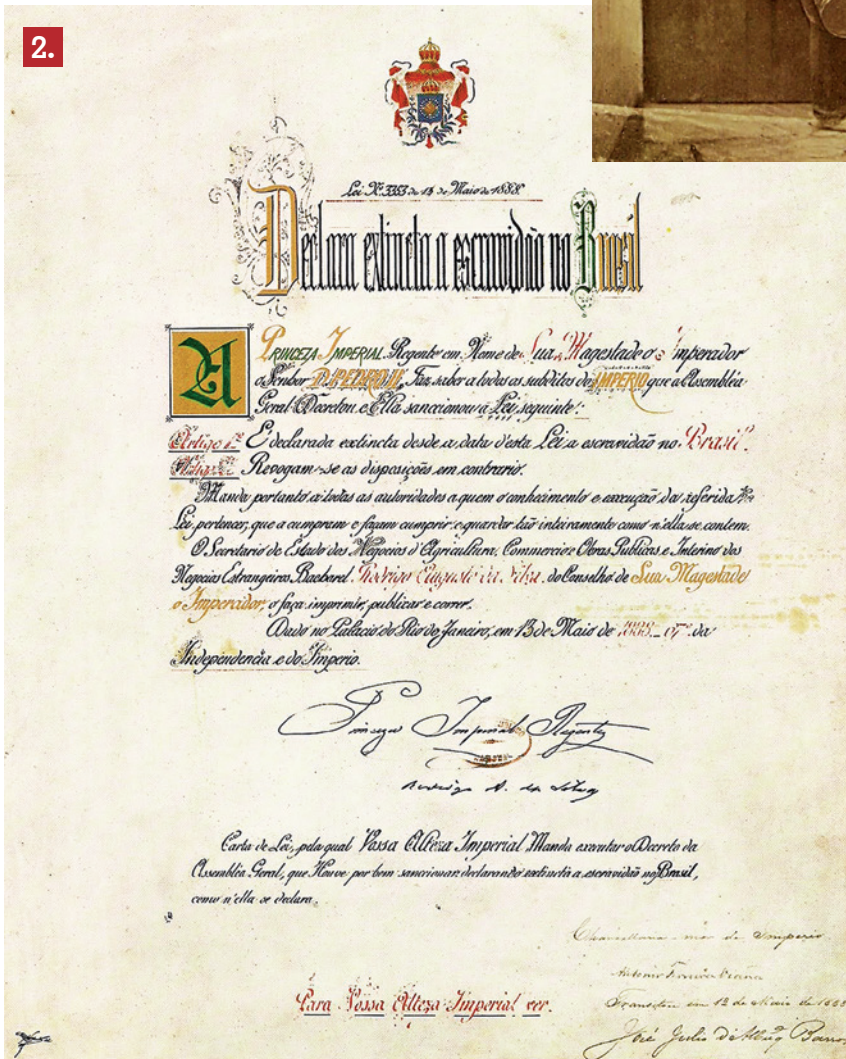 2.
Lei Nº 3353 de 13 de Maio de 1888.
Declara extincta a escravidão no Brasil
A PRINCEZA IMPERIAL Regente em Nome de Sua Magestade o Imperador
o Senhor D. PEDRO II, Faz saber a todos os subditos do IMPERIO que a Assembléa
Geral Decretou e Ella sanccionou a Lei seguinte:
Artigo 1º É declarada extincta desde a data d'esta Lei a escravidão no Brasil.
Artigo 2º Revogam-se as disposições em contrario.
Manda portanto a todas as autoridades a quem o conhecimento e execução da referida
Lei pertencer, que a cumpram e façam cumprir e guardar tão inteiramente como n'ella se contem.
O Secretario de Estado dos Negocios d'Agricultura, Commercio e Obras Publicas e Interino dos
Negocios Estrangeiros Bacharel Rodrigo Augusto da Silva do Conselho de Sua Magestade
o Imperador, o faça imprimir, publicar e correr.
Dado no Palacio do Rio de Janeiro, em 13 de Maio de 1888 - 67º da
Independencia e do Imperio.
Princeza Imperial Regente
Rodrigo A. da Silva
Carta de Lei, pela qual Vossa Alteza Imperial Manda executar o Decreto da
Assembléa Geral, que Houve por bem sanccionar declarando extincta a escravidão no Brasil,
como n'ella se declara.
Para Vossa Alteza Imperial ver.
Chancellaria-mor do Imperio
Antonio Ferreira Vianna
Transitou em 13 de Maio de 1888
José Julio d'Albuq Barros